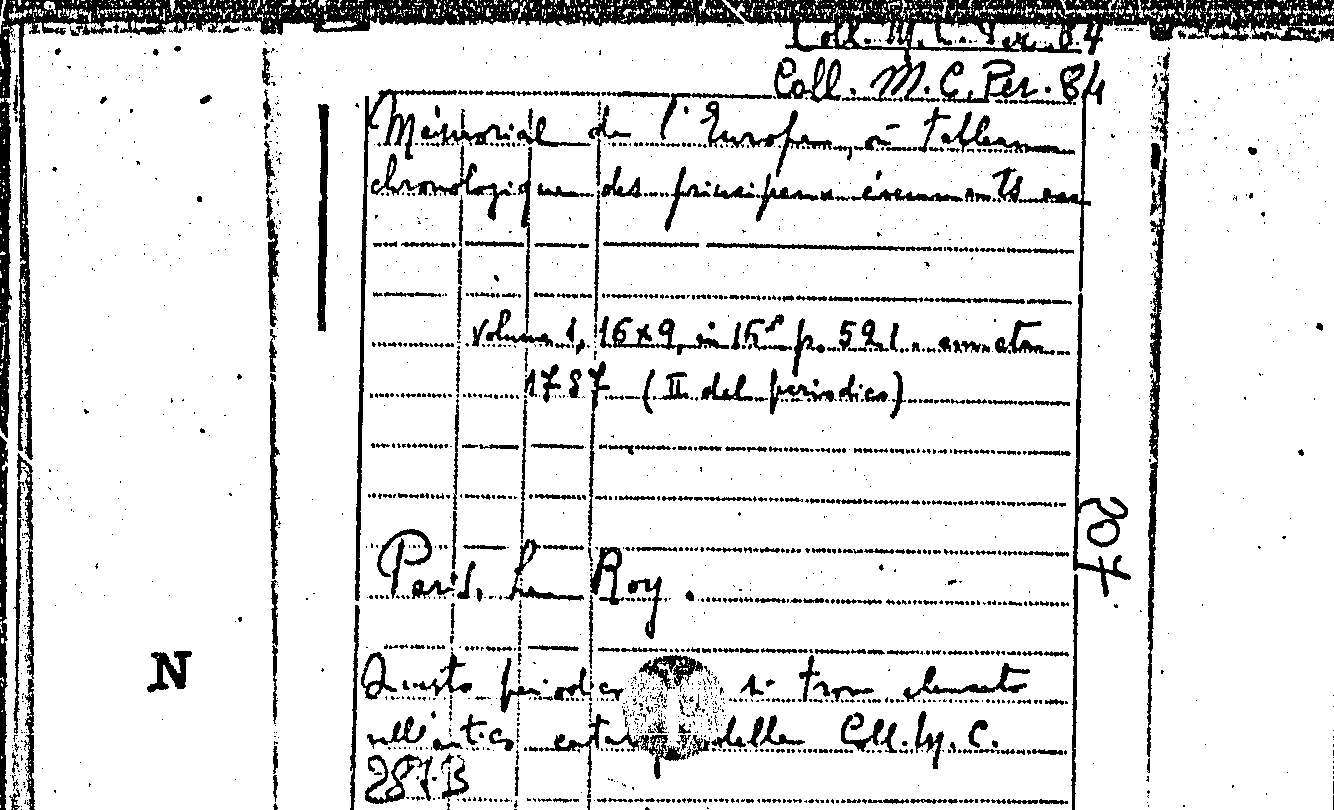 Coll. M. C. Per. 84
Coll. M. C. Per. 84
Mémorial de l'Europe, ou tableau
chronologique des principaux événements
volume 1, 16x9, in 16° p. 521.
1787 (II del periodico)
207
Paris, Le Roy.
N
Questo periodico si trova elencato
nell'antico della Coll. M. C.
287B